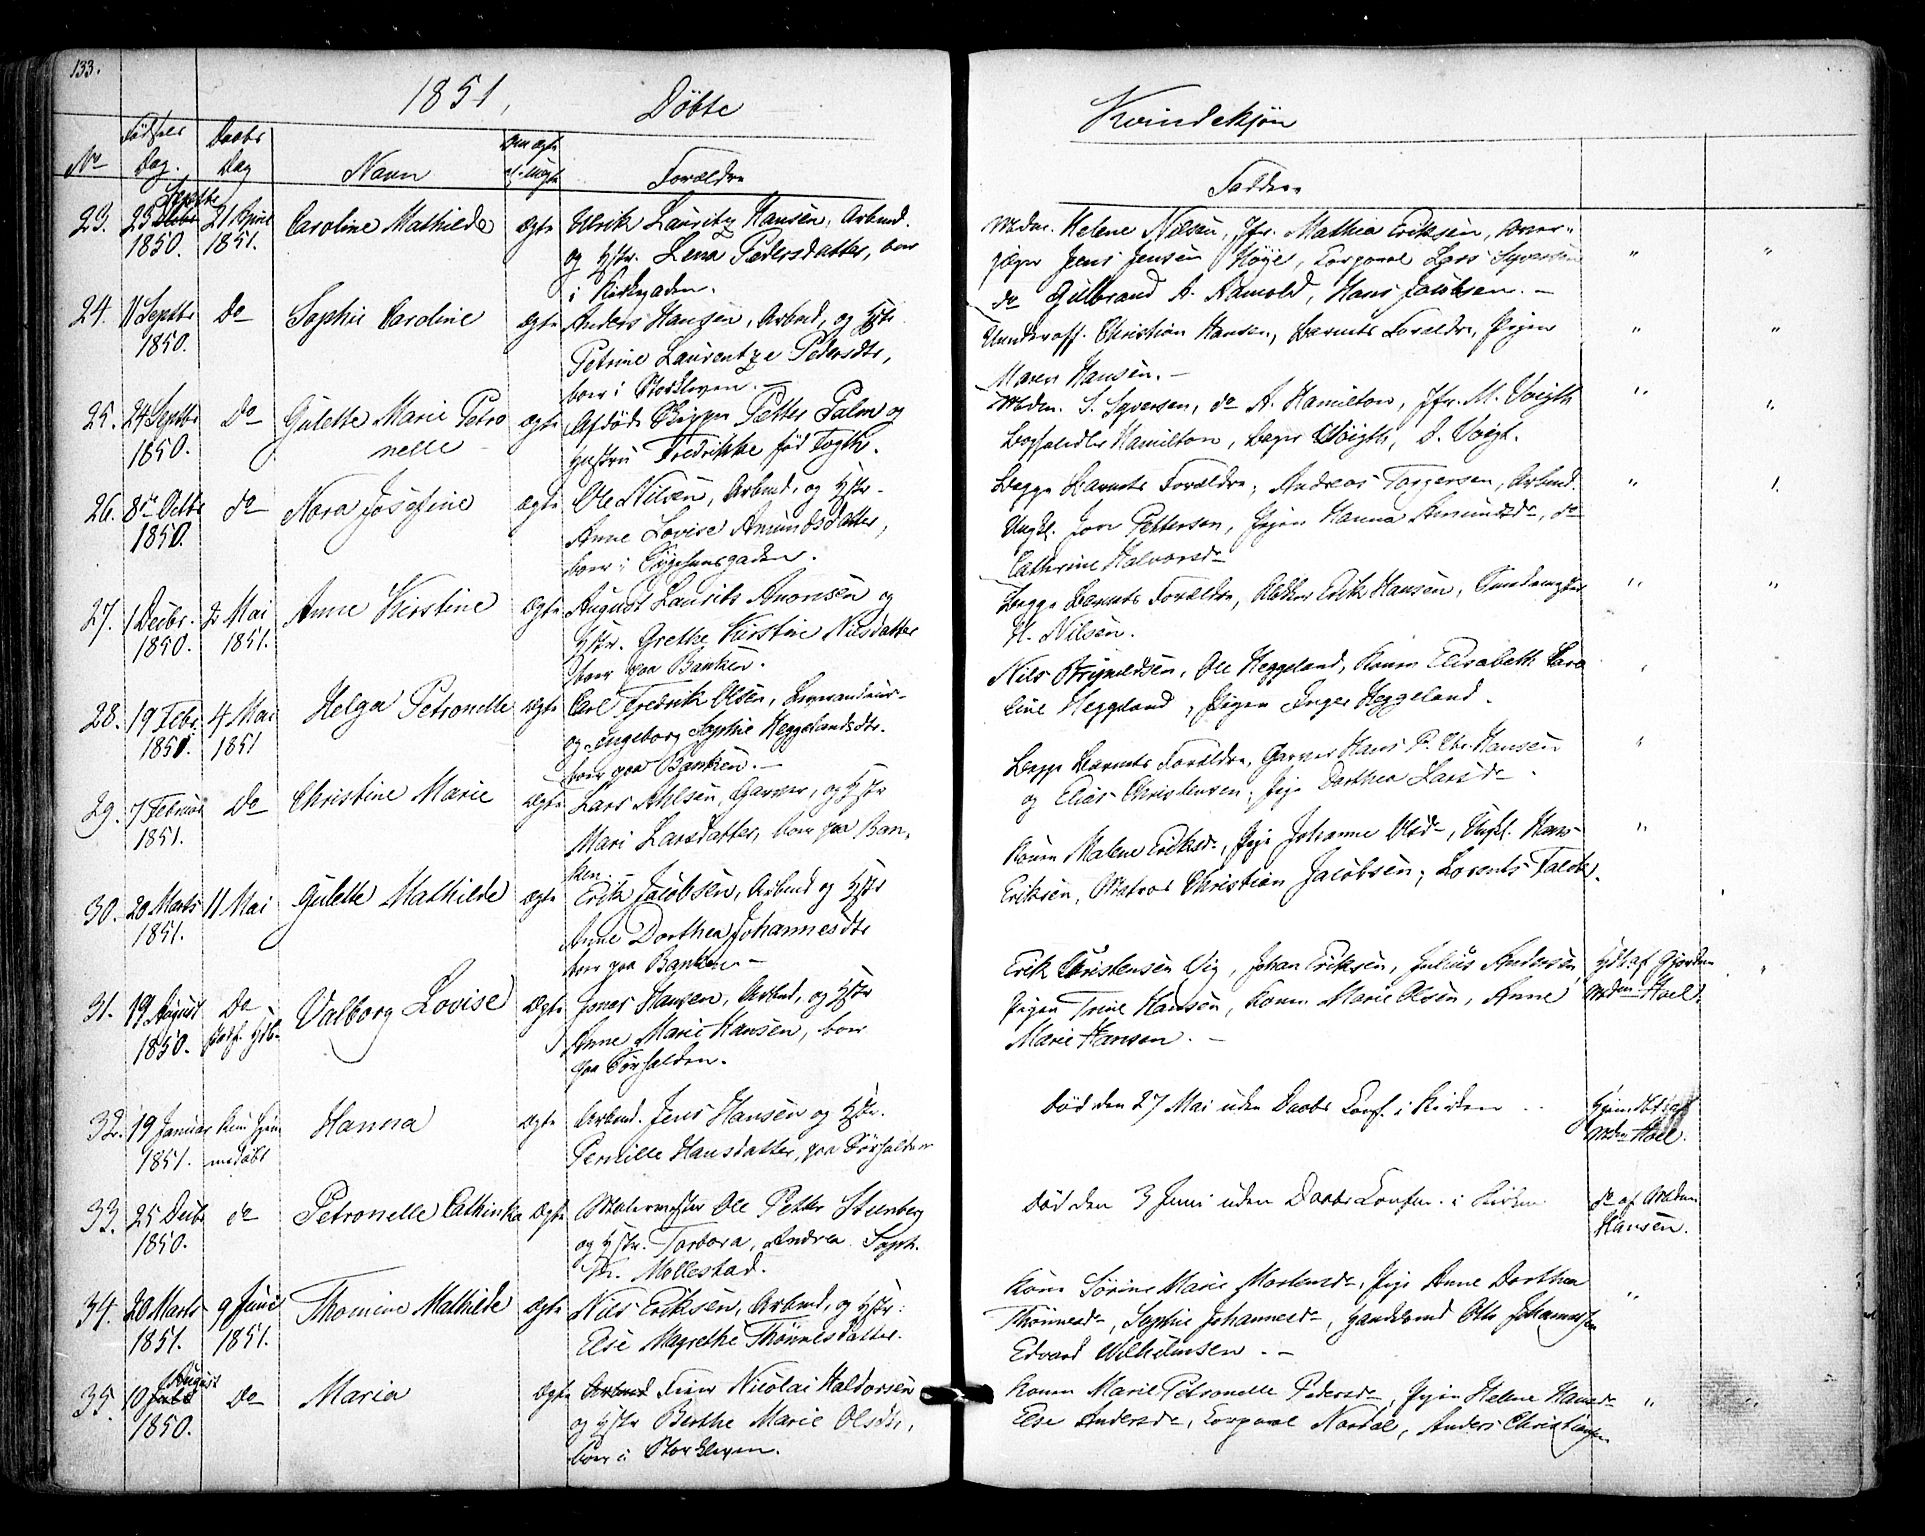 133.
1851, Døbte Kvindekjøn
No Fødsels Dag. Daabs Dag Navn Om ægte el. uægte Forældre Faddere
23. 23 Septbr 1850. 21 April 1851. Caroline Mathilde ægte Ulrik Lauritz Hansen, Arbmd.
og Hstr. Lena Pedersdatter, boer
i Kirkegaden.
Mdm. Helene Nilsen, Jfr. Mathea Eriksen,
jæger Jens Jensen Høye, Corporal Lars Syversen
do Gulbrand A. Ramold, Hans Jacobsen. –
24. 11 Septbr 1850. Do Sophie Caroline ægte Anders Hansen, Arbmd, og Hstr
Petrine Laurentze Pedersdtr,
boer i Storkleven. –
Underoff. Christian Hansen, Barnets Forældre, Pigen
Maren Hansen. –
25. 24 Septbr 1850. Do Gulette Marie Petro
nelle ægte Afdøde Skipper Petter Palm og
Hustru Fredrikke fød Fogth.
Mdm. S. Syversen, do A. Hamilton, Jfr. M. Voigth
Boghandler Hamilton, Bager Voigth, S. Voigt.
26. 8de Octbr 1850. do Nora Josefine ægte Ole Nilsen, Arbmd, og Hstr.
Anne Lovise Amundsdatter,
boer i
Begge Barnets Forældre, Andreas Torgersen, Arbmd.
Ungk. Petterson, Pigen Hanna Amundsdr, do
Cathrine Halvorsdr
27. 1 Decbr. 1850. 2 Mai 1851. Anne Kirstine ægte August Laurits Amonsen og
Hstr. Grethe Kirstine Nilsdatter
boer paa Banken.
Begge Barnets Forældre, Erik Hansen,
H. Nilsen.
28. 19 Febr. 1851. 4 Mai 1851 Helga Petronelle ægte Carl Fredrik Olsen,
og Ingeborg Sophie Heggelandsdtr.
boer paa Banken. –
Nils Brynildsen, Ole Heggeland, Konen Elisabeth Caro
line Heggeland, Pigen Inger Heggeland.
29. 7 Februar 1851. Do Christine Marie ægte Lars Ahlsen, Garver, og Hstr
Mari Larsdatter, boer paa Ban-
ken.
Begge Barnets Forældre, Garver Hans P. Chr. Hansen
og Elias Christensen, Pige Dorthea Larsdr.
30. 20 Marts 1851. 11 Mai Gulette Mathilde ægte Erik Jacobsen, Arbmd og Hstr
Anne Dorthea Johannesdtr
boer paa Banken. –
Konen Malene Eriksdr, Pige Johanne Olsdr, Ungk. Hans
Eriksen, Matros Christian Jacobsen, Lorents
31. 19 August 1850. Do Valborg Lovise ægte Jonas Hansen, Arbmd, og Hstr
Anne Marie Hansen, boer
paa Sørhalden.
Erik Christensen Vig, Johan Eriksen, Julius Andersen
Pigen Trine Hansen, Konen Marie Olsen, Anne
Marie Hansen. –
Mdm Hoel.
32. 19 Januar 1851. Kun hjem
medøbt Hanna ægte Arbmd. Jens Hansen og Hstr.
Pernille Hansdatter, paa Sørhalden
Død den 27 Mai uden Daabs Conf. i Kirken
Hjemdøbt af
Mdm Hoel.
33. 25 Decbr 1850. do Petronelle Cathinka ægte Malermester Ole Petter Steenberg
og Hstr. Torbora, Andrea Soph.
Møllestad.
Død den 3 Juni uden Daabs Confm. i Kirken
do af Mdm
Hansen.
34. 20 Marts 1851. 9 Juni 1851. Thomine Mathilde ægte Nils Eriksen, Arbmd, og Hstr.
Else Magrethe Thønnesdatter.
Kone Sørine Marie Mortensdr, Pige Anne Dorthea
Thønnesdr, Sophie Johannesdr, Otto Johannesen
Edvard Wilhelmsen. –
35. 10 August 1850. Do Maria ægte Nicolai Haldorsen
og Hstr Berthe Marie Olsdtr,
boer i Storkleven.
Konen Marie Petronelle Pedersdr, Pigen Helene Hansdr
Else Andersdr, Corporal Nordal, Anders Christiansen